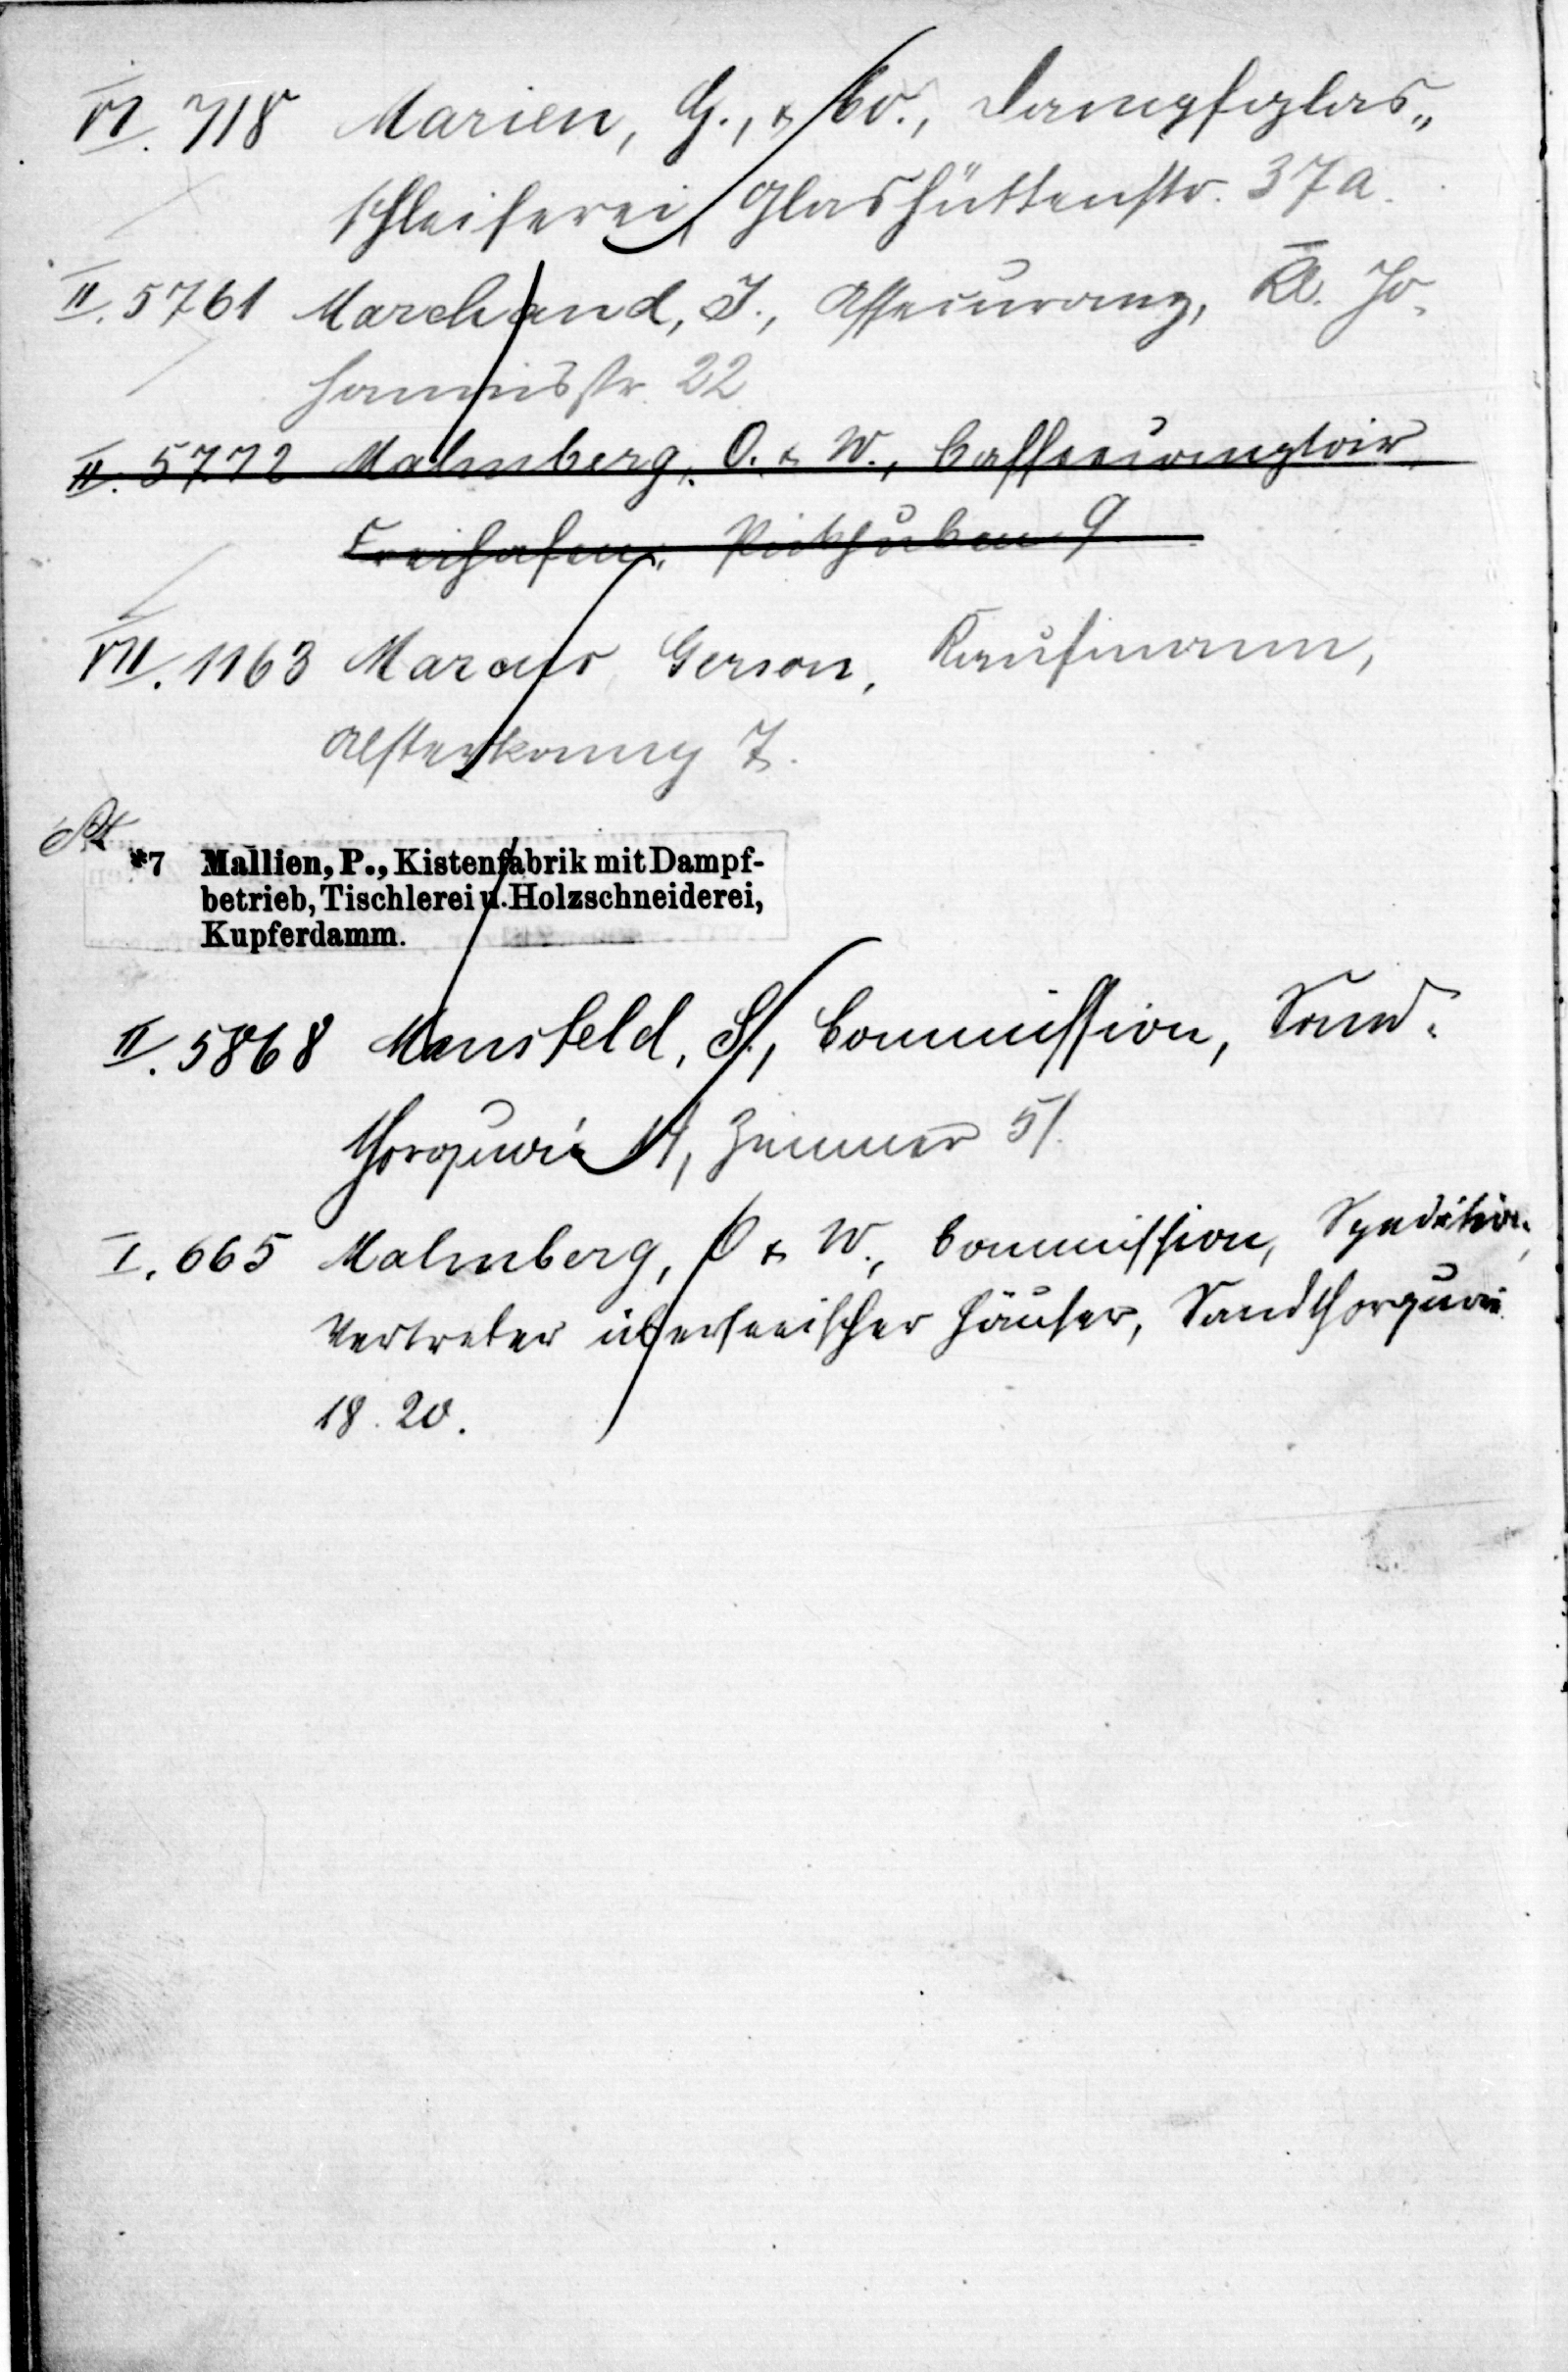 VI. 718 Marien, G., & Co., Dampfglas„
schleiferei, Glashüttenstr. 37a.
II. 5761 Marchand, J., Assecuranz, Kl. Jo-
hannisstr. 22
II. 5772 Malmberg, O. & W., Caffeecomptoir,
Freihafen, Pickhuben 9
VII. 1163 Marcus Gerson, Kaufmann,
Alsterkamp 7.
*7 Mallien, P., Kistenfabrik mit Dampf-
betrieb, Tischlerei u. Holzschneiderei,
Kupferdamm.
II. 5868 Mansfeld, S., Commission, Sand-
thorquai 14, Zimmer 51.
I. 665 Malmberg, O & W., Commission, Spedition,
Vertreter überseeischer Häuser, Sandthorquai
18.20.